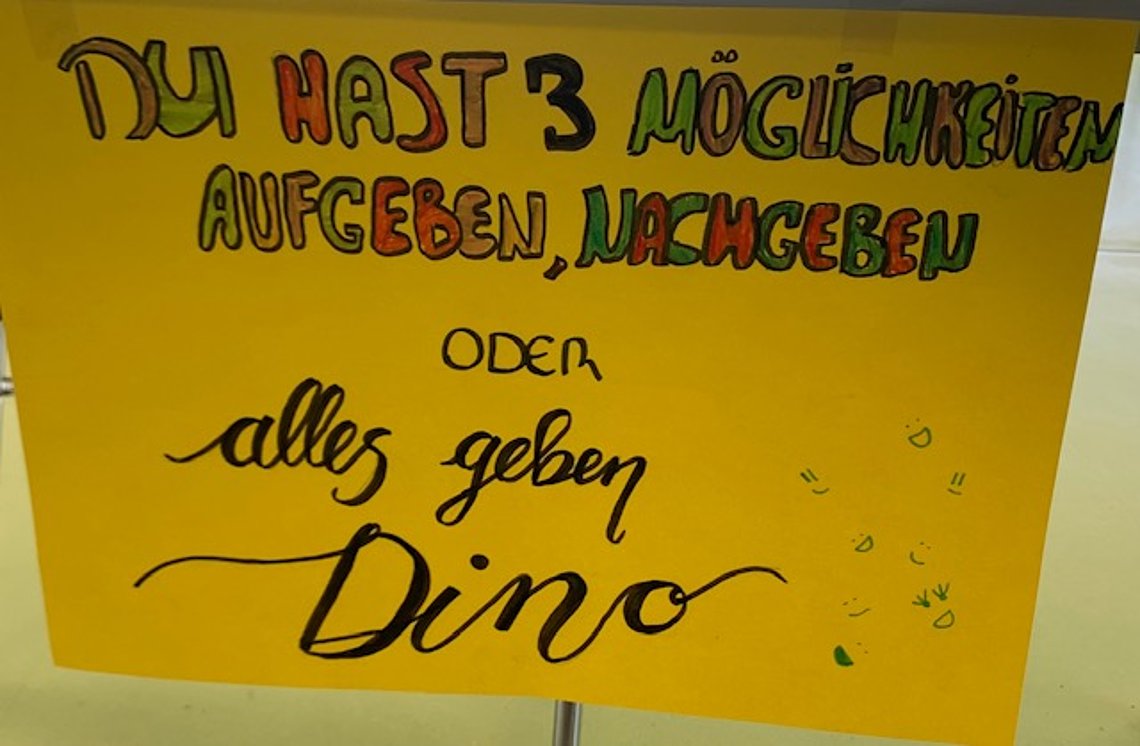 DU HAST 3 MÖGLICHKEITEN
AUFGEBEN, NACHGEBEN
ODER
alles geben
Dino